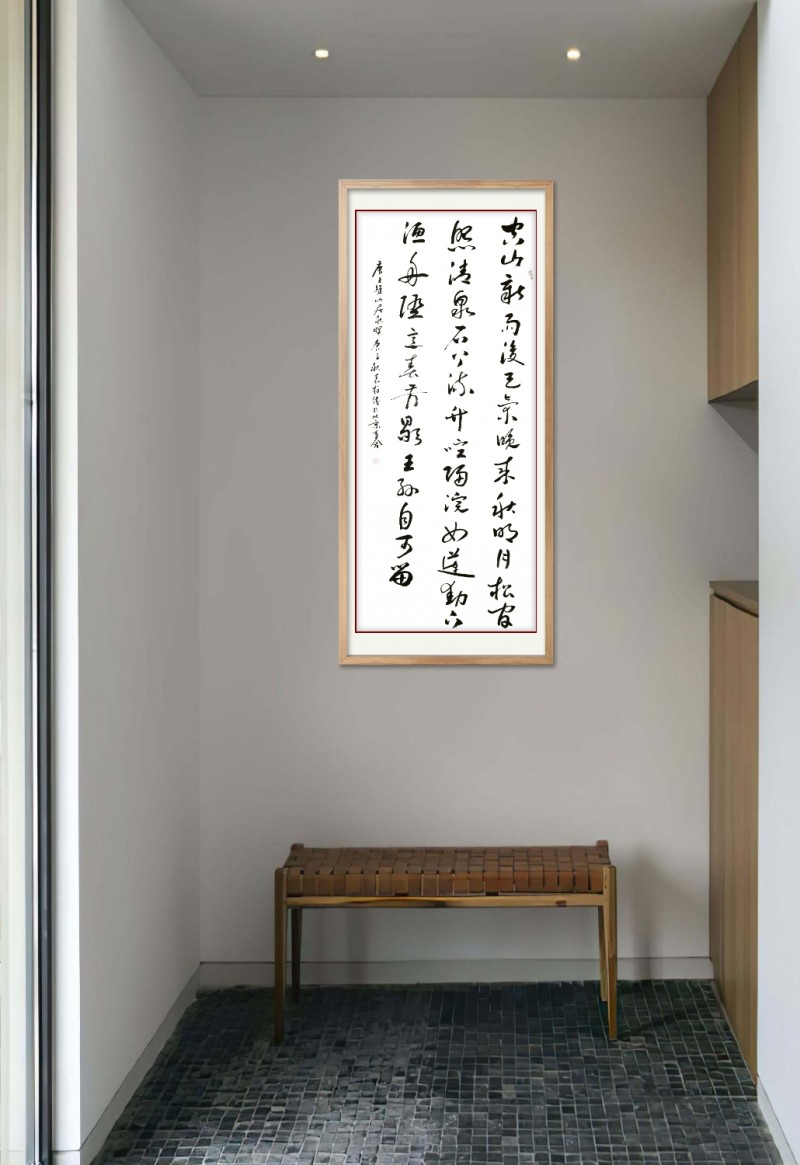 空山新雨後天氣晚來秋明月松間
照清泉石上流竹喧歸浣女蓮動下
漁舟隨意春芳歇王孫自可留
唐王維山居秋暝庚子秋北京